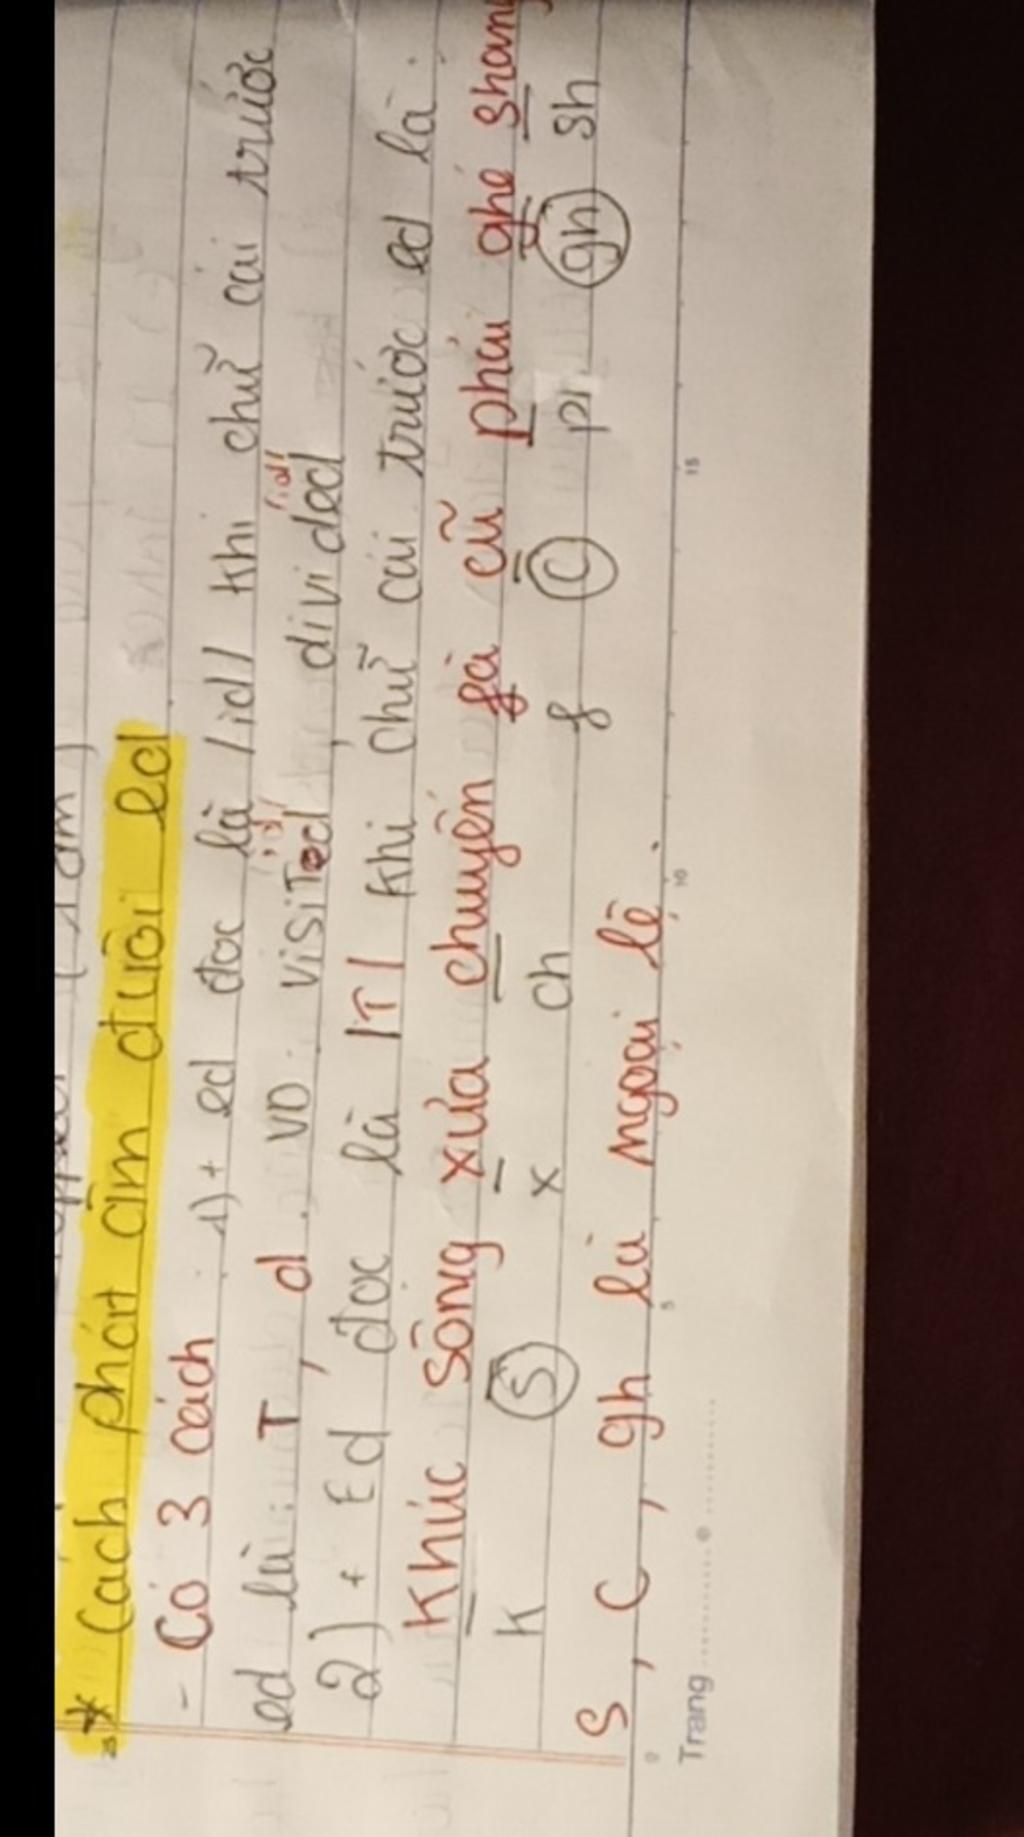 * Cách phát âm đuôi ed
- Có 3 cách 1) + ed đọc là /id/ khi chữ cái trước
ed là: T, d. VD: visiTed, divided
/id/ /id/
2) + Ed đọc là /T/ khi chữ cái trước ed là:
Khúc sông xưa chuyển fà cũ phải ghé shang
k s x ch f c p gh sh
S, C, gh là ngoại lệ.
Trang